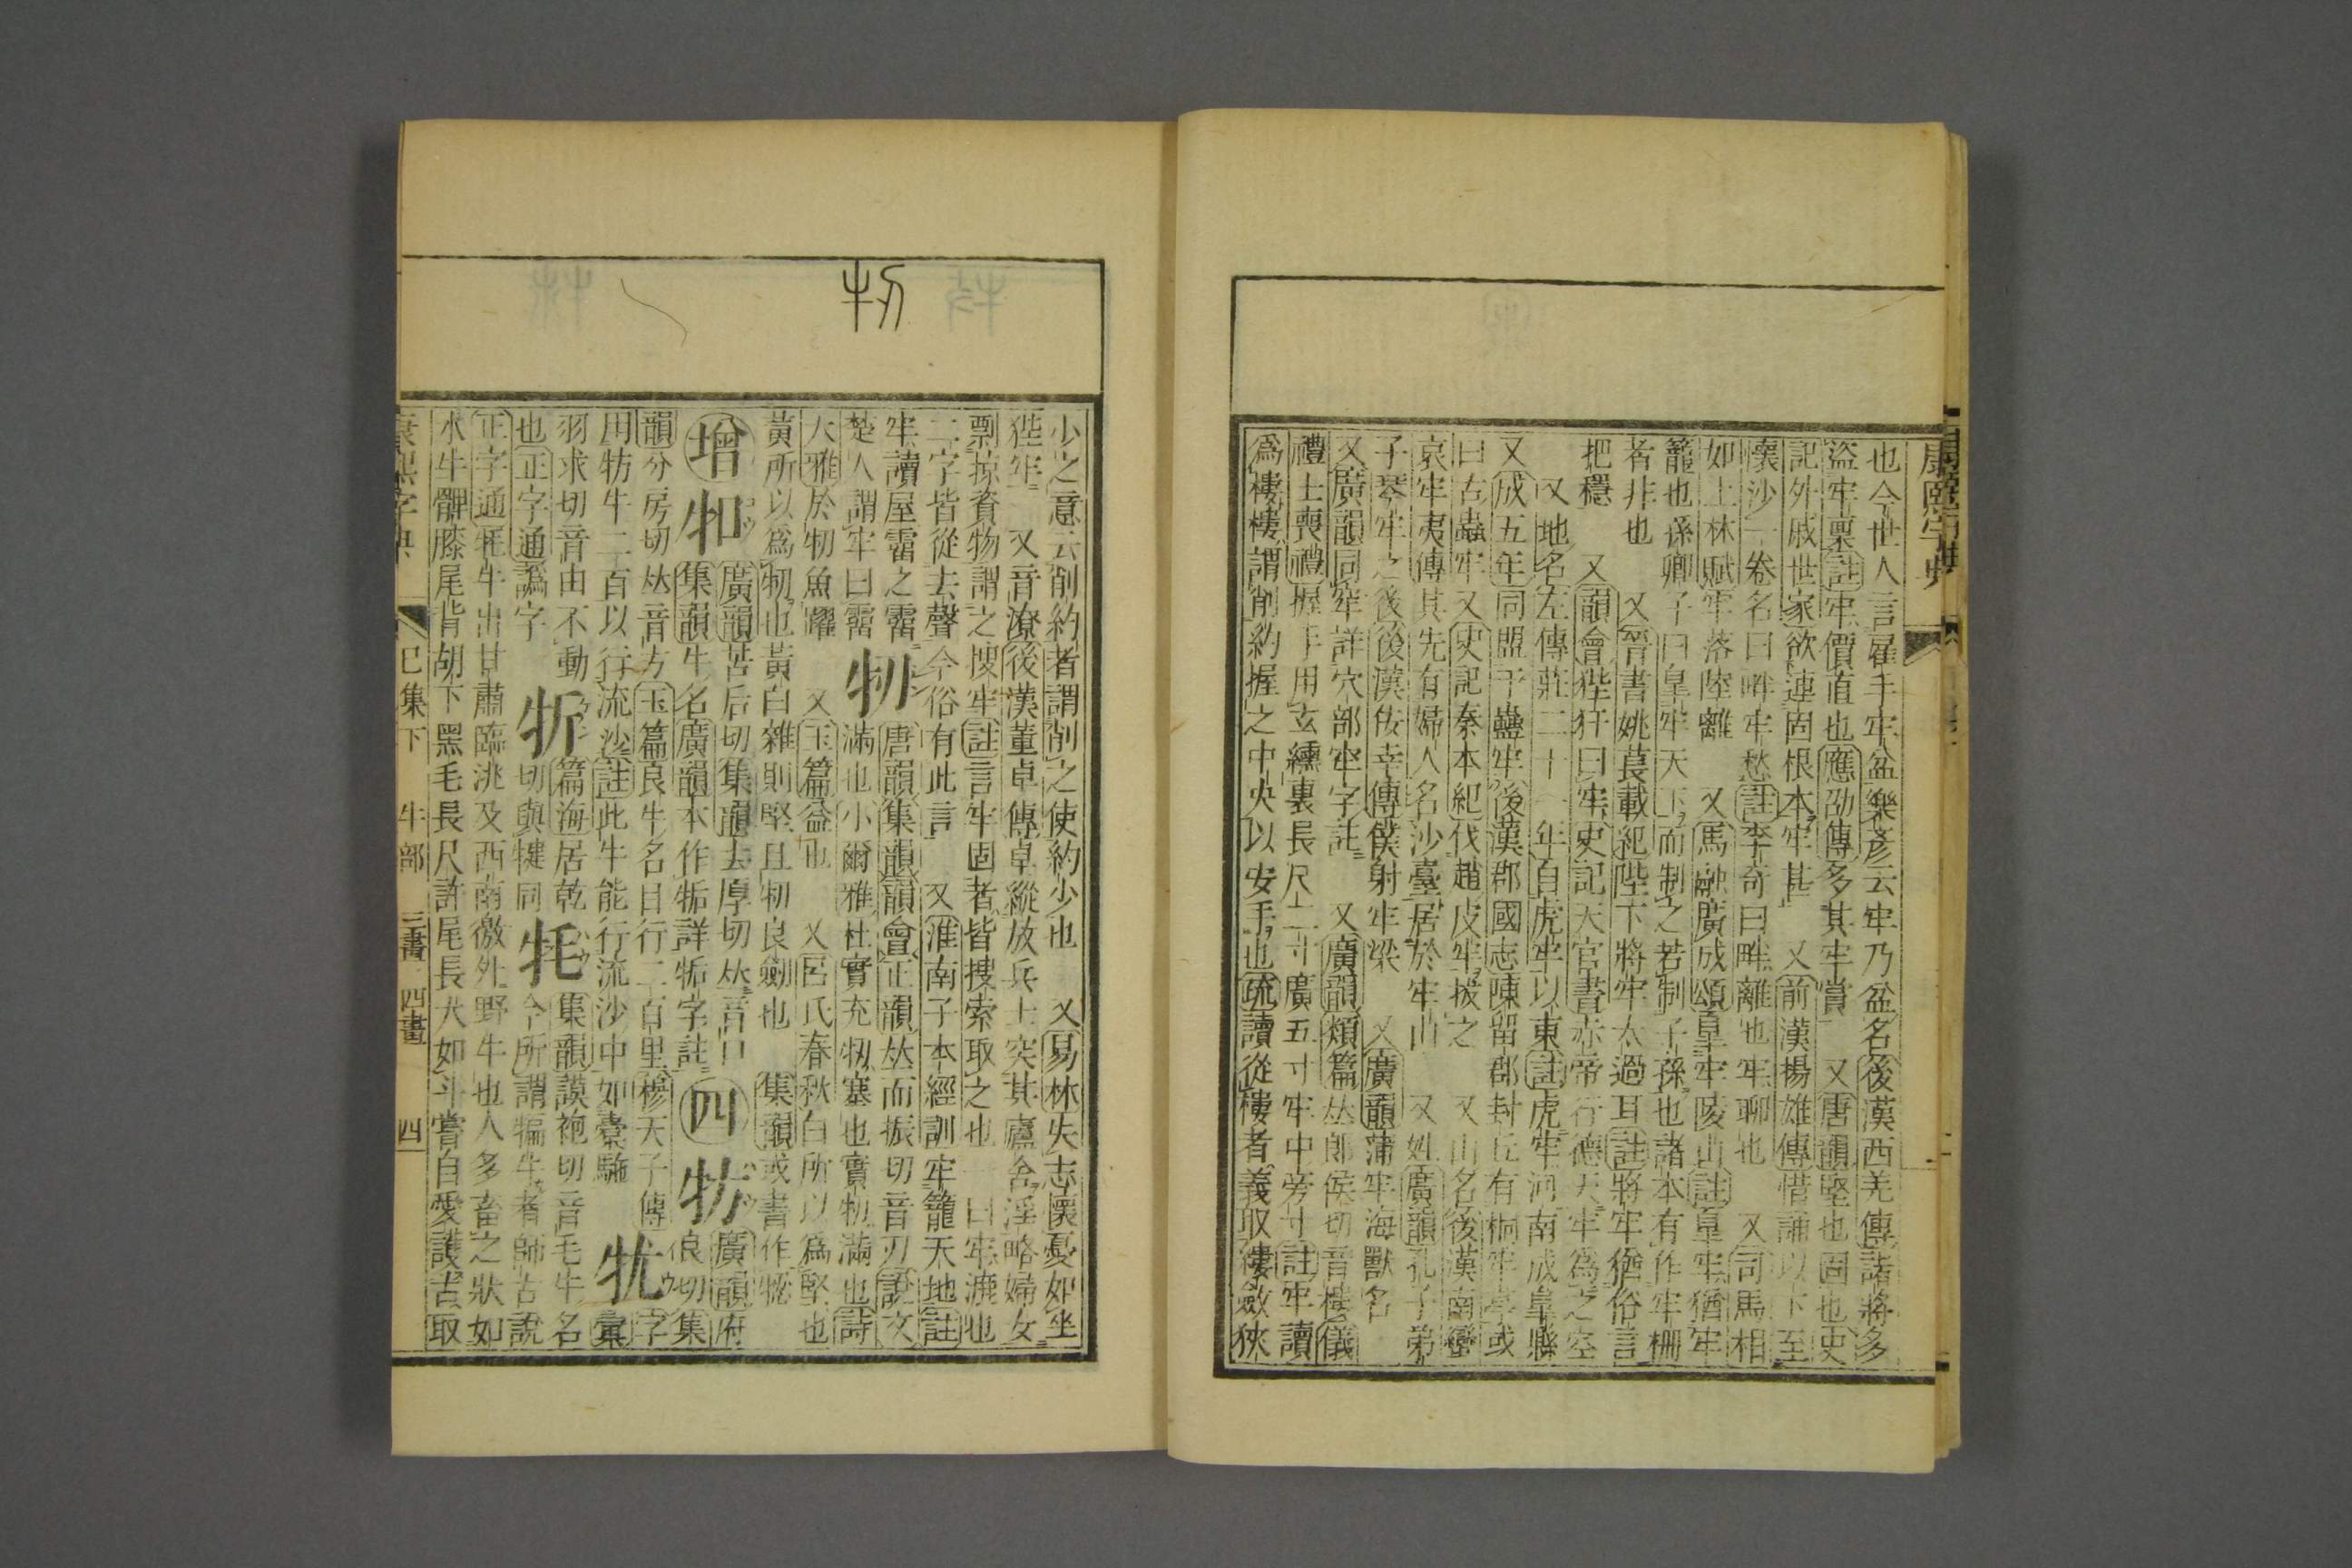 康熙字典
也今世人言雇手牢盆樂彥云牢乃盆名後漢西羌傳諸將多
盜牢稟註牢價直也應劭傳多其牢賞　又唐韻堅也固也史
記外戚世家欲連固根本牢甚　又前漢揚雄傳惜誦以下至
懷沙一卷名曰畔牢愁註李奇曰畔離也牢聊也　又司馬相
如上林賦牢落陸離　又馬融廣成頌皐牢陵山註皐牢猶牢
籠也孫卿子曰皐牢天下而制之若制子孫也諸本有作牢柵
者非也　又晉書姚萇載紀陛下將牢太過耳註將牢猶俗言
把穩　又韻會狴犴曰牢史記天官書赤帝行德天牢為之空
又地名左傳莊二十一年自虎牢以東註虎牢河南成皐縣
又成五年同盟于蟲牢後漢郡國志陳留郡封丘有桐牢亭或
曰古蟲牢　又史記秦本紀伐趙皮牢拔之　又山名後漢南蠻
哀牢夷傳其先有婦人名沙臺居於牢山　又姓廣韻孔子弟
子琴牢之後後漢佞幸傳僕射牢梁　又廣韻蒲牢海獸名
又廣韻同窂詳穴部窂字註　又廣韻類篇𠀤郎侯切音樓儀
禮士喪禮握手用玄纁裏長尺二寸廣五寸牢中旁寸註牢讀
爲樓樓謂削約握之中央以安手也疏讀從樓者義取摟斂狹
牣
少之意云削約者謂削之使約少也　又易林失志懷憂如坐
狴牢　又音潦後漢董卓傳卓縱放兵士突其廬舍淫略婦女
剽掠資物謂之搜牢註言牢固者皆搜索取之也一曰牢漉也
二字皆從去聲今俗有此言　又淮南子本經訓牢籠天地註
牢讀屋霤之霤　牣　唐韻集韻韻會正韻𠀤而振切音刃說文
楚人謂牢曰霤　滿也小爾雅杜實充牣塞也實牣滿也詩
大雅於牣魚躍　又玉篇益也　又呂氏春秋白所以爲堅也
黃所以爲牣也黃白雜則堅且牣良劒也　集韻或書作㸾
增　㸸　廣韻苦后切集韻去厚切𠀤音口　廣韻府
集韻牛名廣韻本作㸸詳㸸字註　四　牥　良切集
韻分房切𠀤音方玉篇良牛名日行二百里穆天子傳　字
用牥牛二百以行流沙註此牛能行流沙中如橐駞　牰　彙
羽求切音由不動　㸫　篇海居乾　集韻謨袍切音毛牛名
也正字通譌字　切與犍同　牦　今所謂犏牛者師古說
正字通牦牛出甘肅臨洮及西南徼外野牛也人多畜之狀如
水牛髀膝尾背胡下黑毛長尺許尾長大如斗嘗自愛護古取
康熙字典　巳集下　牛部　三畫　四畫　四